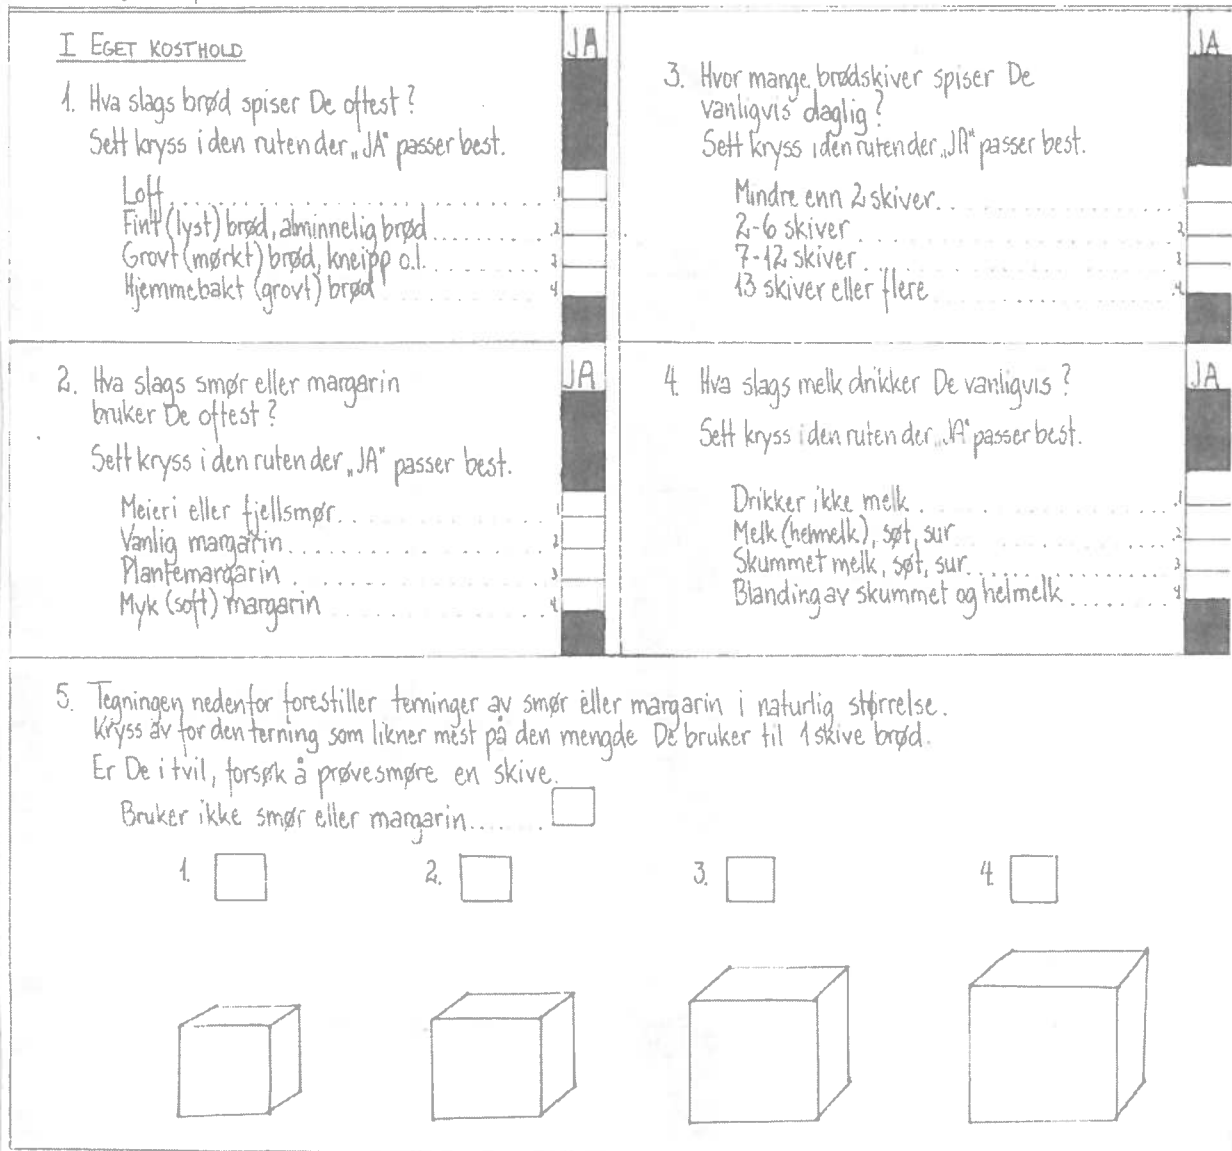 I EGET KOSTHOLD
JA
1. Hva slags brød spiser De oftest?
Sett kryss i den ruten der „JA" passer best.
Loff 1
Fint (lyst) brød, alminnelig brød 2
Grovt (mørkt) brød, kneipp o.l. 3
Hjemmebakt (grovt) brød 4
2. Hva slags smør eller margarin
JA
bruker De oftest?
Sett kryss i den ruten der „JA" passer best.
Meieri eller fjellsmør 1
Vanlig margarin 2
Plantemargarin 3
Myk (soft) margarin 4
JA
3. Hvor mange brødskiver spiser De
vanligvis daglig?
Sett kryss i den ruten der „JA" passer best.
Mindre enn 2 skiver 1
2-6 skiver 2
7-12 skiver 3
13 skiver eller flere 4
4. Hva slags melk drikker De vanligvis?
JA
Sett kryss i den ruten der „JA" passer best.
Drikker ikke melk 1
Melk (helmelk), søt, sur 2
Skummet melk, søt, sur 3
Blanding av skummet og helmelk 4
5. Tegningen nedenfor forestiller terninger av smør eller margarin i naturlig størrelse.
Kryss av for den terning som likner mest på den mengde De bruker til 1 skive brød.
Er De i tvil, forsøk å prøvesmøre en skive.
Bruker ikke smør eller margarin
1. 2. 3. 4